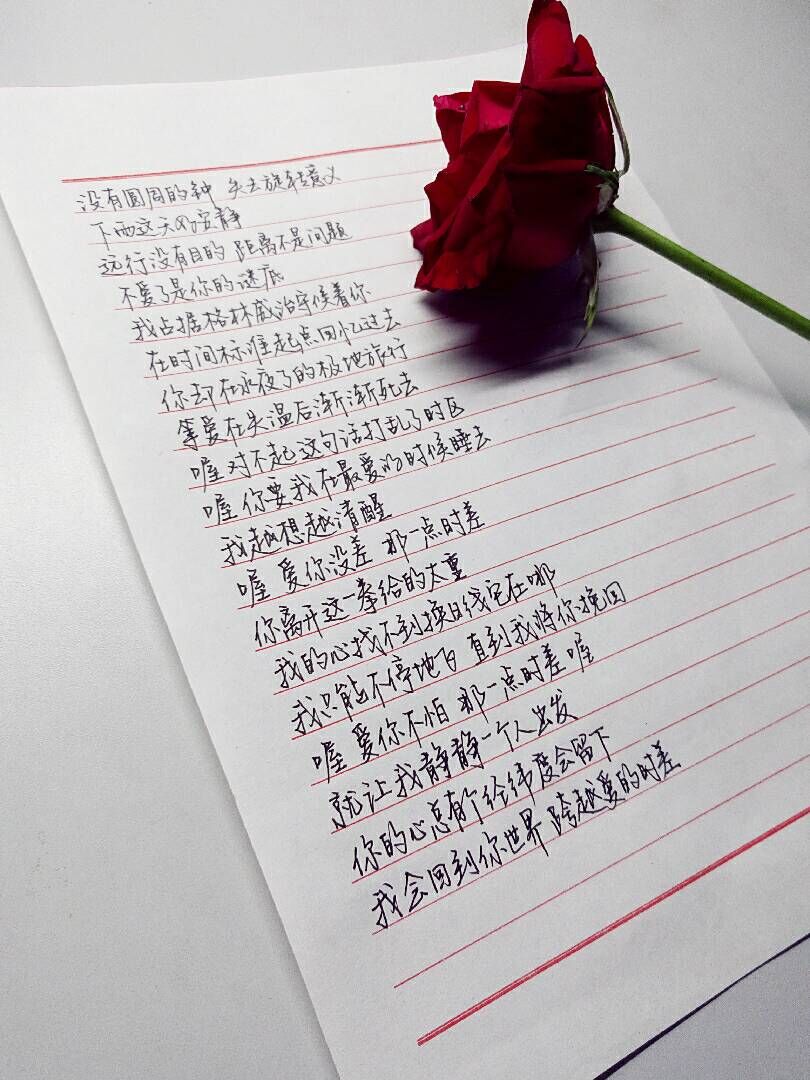 没有圆周的钟 失去旋转意义
下雨这天的安静
远行没有目的 距离不是问题
不爱了是你的谜底
我占据格林威治守候着你
在时间标准起点回忆过去
你却在永夜了的极地旅行
等爱在失温后渐渐死去
喔 对不起 这句话打乱了时区
喔 你要我在最爱的时候睡去
我越想越清醒
喔 爱你没差 那一点时差
你离开这一拳给的太重
我的心找不到换日线它在哪
我只能不停地飞 直到我将你挽回
喔 爱你不怕 那一点时差 喔
就让我静静一个人出发
你的心总有个经纬度会留下
我会回到你世界 跨越爱的时差